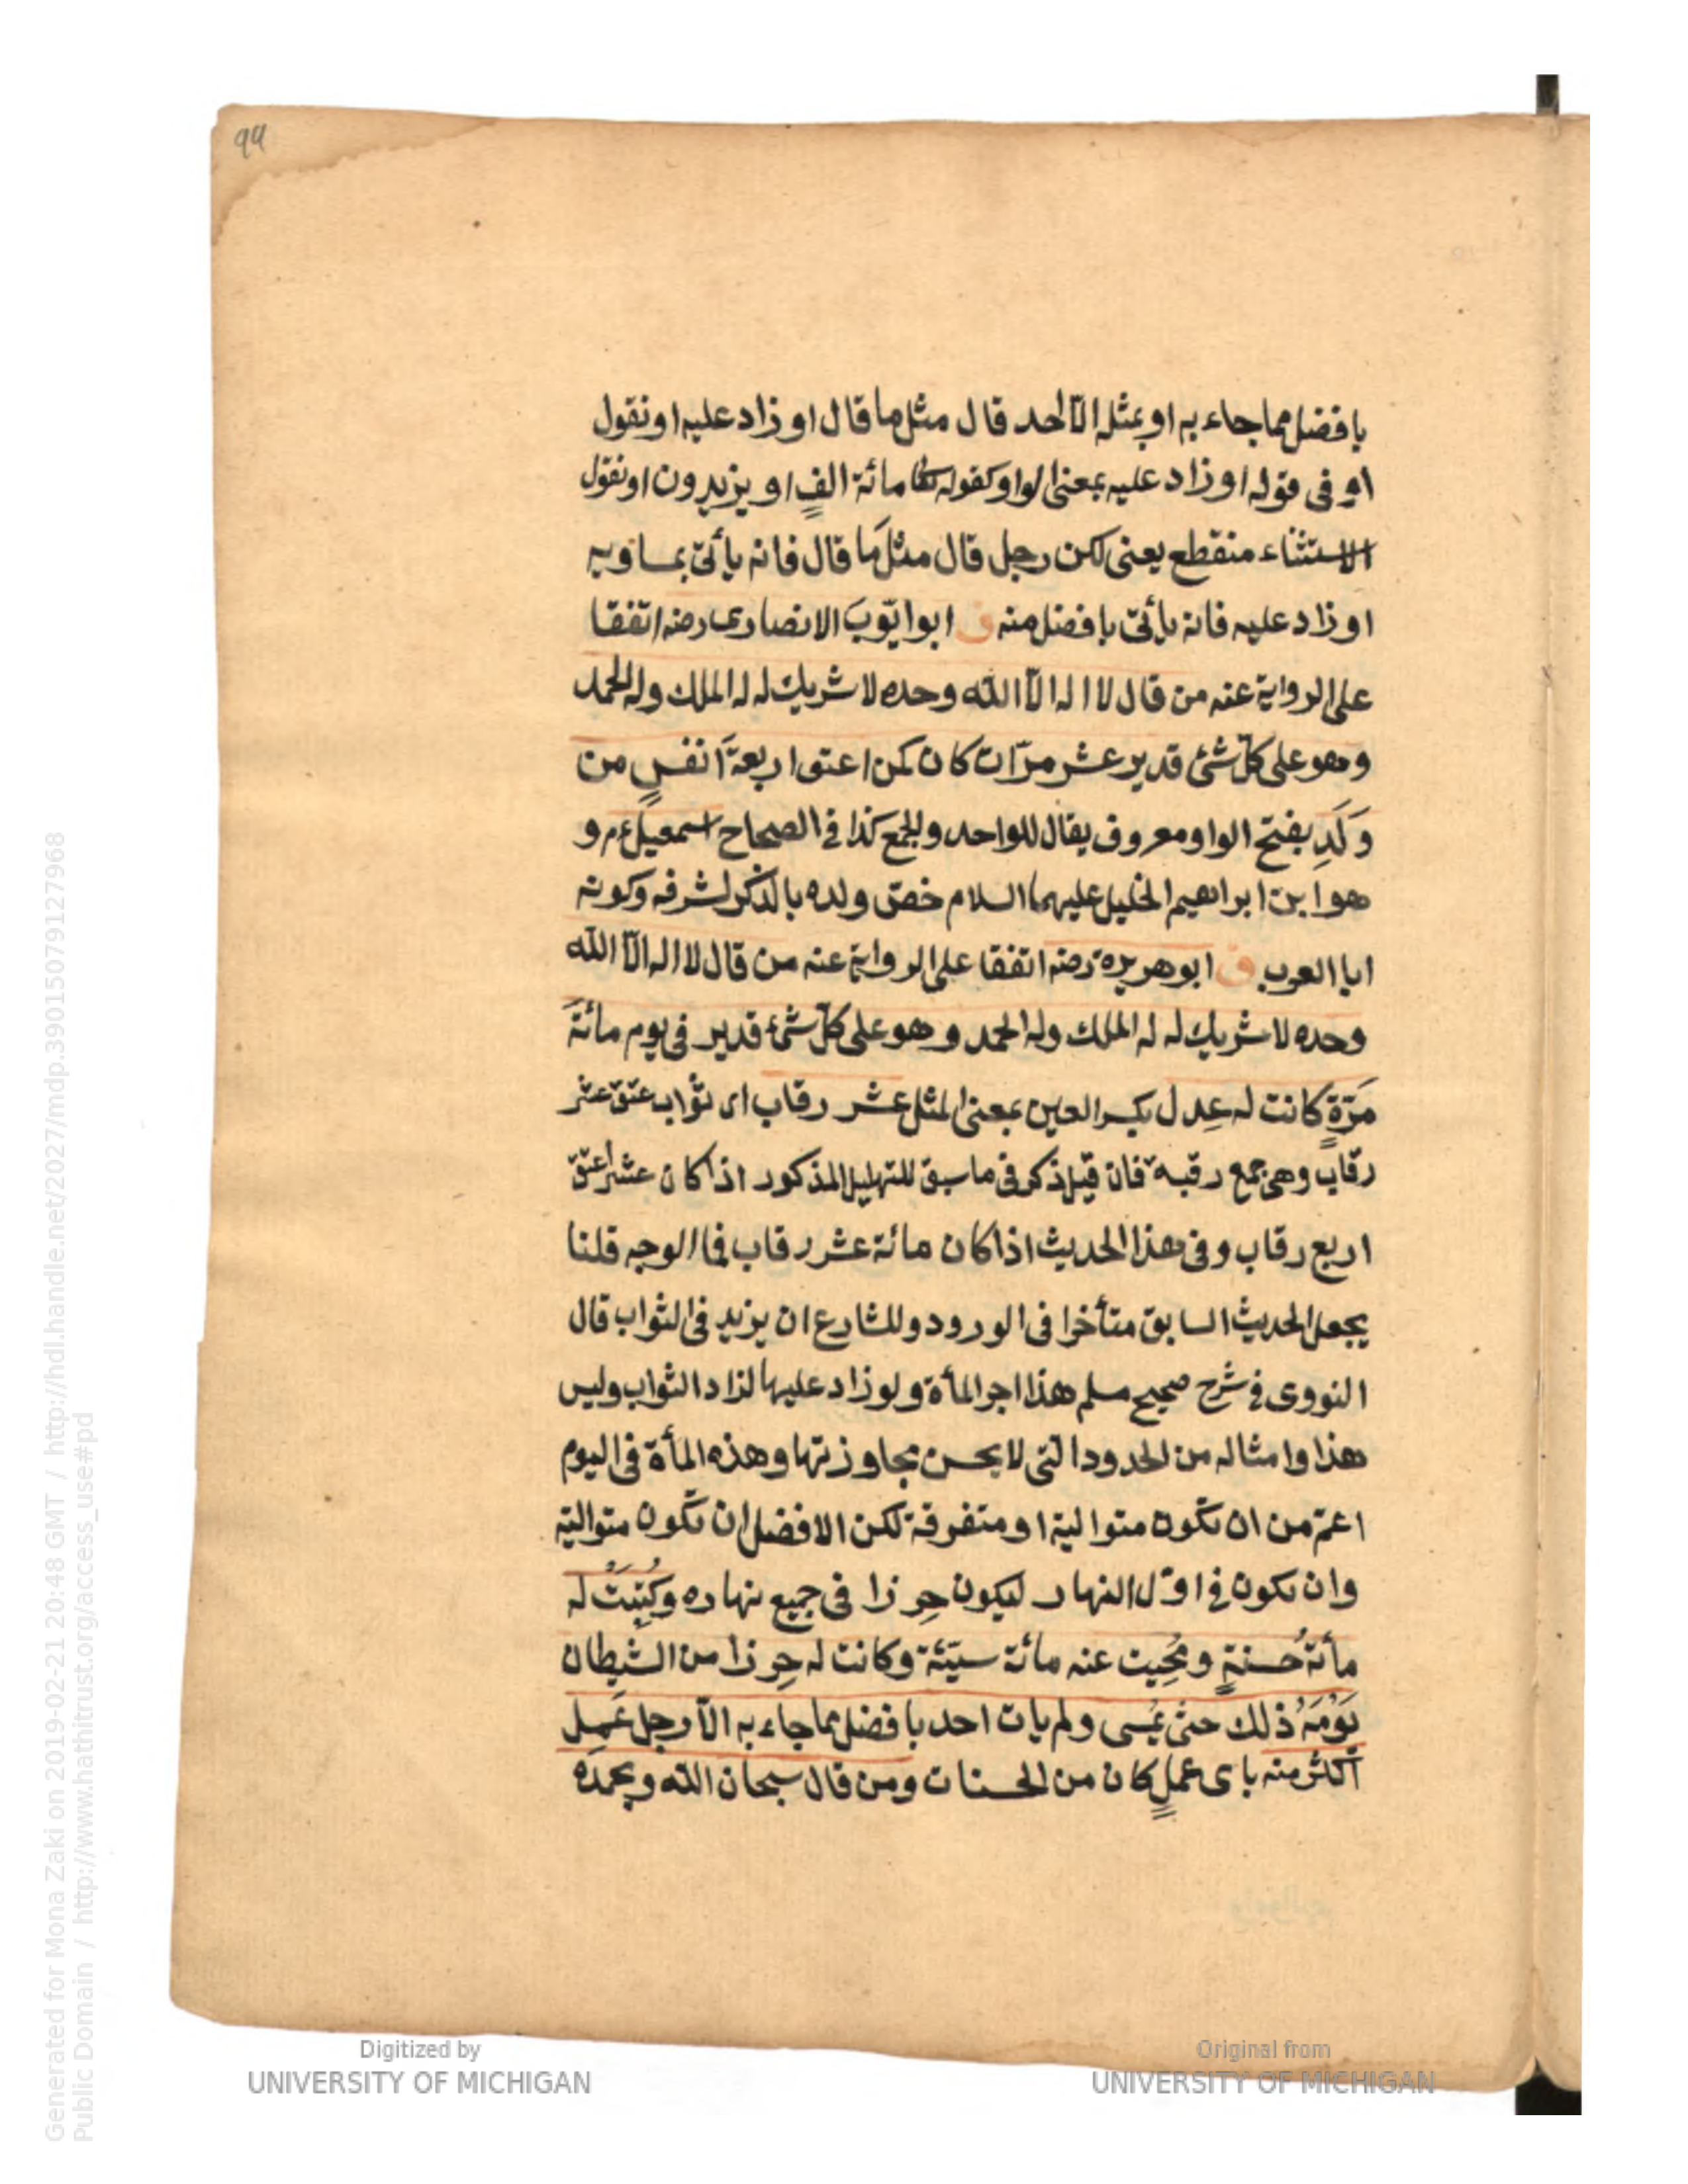 99
بافضل مما جاء به او بمثله الّا احد قال مثل ما قال او زاد عليه او نقول
او فى قوله او زاد عليه بمعنى الواو كقوله تعالى مائة الفٍ او يزيدون او نقول
الاستثناء منقطع يعنى لكن رجل قال مثلَ ما قال فانه يأتى بمساويه
او زاد عليه فانه يأتى بافضل منه ق ابو ايّوبَ الانصارى رضه اتفقا
على الرواية عنه من قال لا اله الّا الله وحده لا شريك له له الملك وله الحمد
وهو على كلّ شئ قدير عشر مرّات كان كمن اعتق اربعةَ انفسٍ من
وَلَدِ بفتح الواو معروف يقال للواحد والجمع كذا فى الصحاح اسمعيل ءم و
هو ابن ابراهيم الخليل عليهما السلام خصّ ولده بالذكر لشرفه وكونه
ابا العرب ق ابو هريرة رضه اتفقا على الرواية عنه من قال لا اله الّا الله
وحده لا شريك له له الملك وله الحمد وهو على كلّ شئ قدير فى يوم مائةَ
مَرّةٍ كانت له عِدل بكسر العين بمعنى المثل عشر رقاب اى ثواب عتق عشر
رقاب وهى جمع رقبة فان قيل ذكر فى ما سبق للتهليل المذكور اذا كان عشرا عتق
اربع رقاب وفى هذا الحديث اذا كان مائة عشر رقاب فما الوجه قلنا
يجعل الحديث السابق متأخرا فى الورود وللشارع ان يزيد فى الثواب قال
النووى فى شرح صحيح مسلم هذا اجر المأة ولو زاد عليها لزاد الثواب وليس
هذا وامثاله من الحدود التى لا يحسن مجاوزتها وهذه المأة فى اليوم
اعمّ من ان تكون متوالية او متفرقة لكن الافضل ان تكون متوالية
وان تكون فى اوّل النهار ليكون حِرزا فى جميع نهاره وكُتِبَتْ له
مأئة حَسنةٍ ومُحِيت عنه مائة سيّئة وكانت له حِرزا من الشيطان
يَوْمَهُ ذلك حتى يُمسى ولم يات احد بافضل مما جاء به الّا رجل عَمِل
اكثر منه باى عملٍ كان من الحسنات ومن قال سبحان الله وبحمده
Digitized by
UNIVERSITY OF MICHIGAN
Original from
UNIVERSITY OF MICHIGAN
Generated for Mona Zaki on 2019-02-21 20:48 GMT / http://hdl.handle.net/2027/mdp.39015079127968
Public Domain / http://www.hathitrust.org/access_use#pd